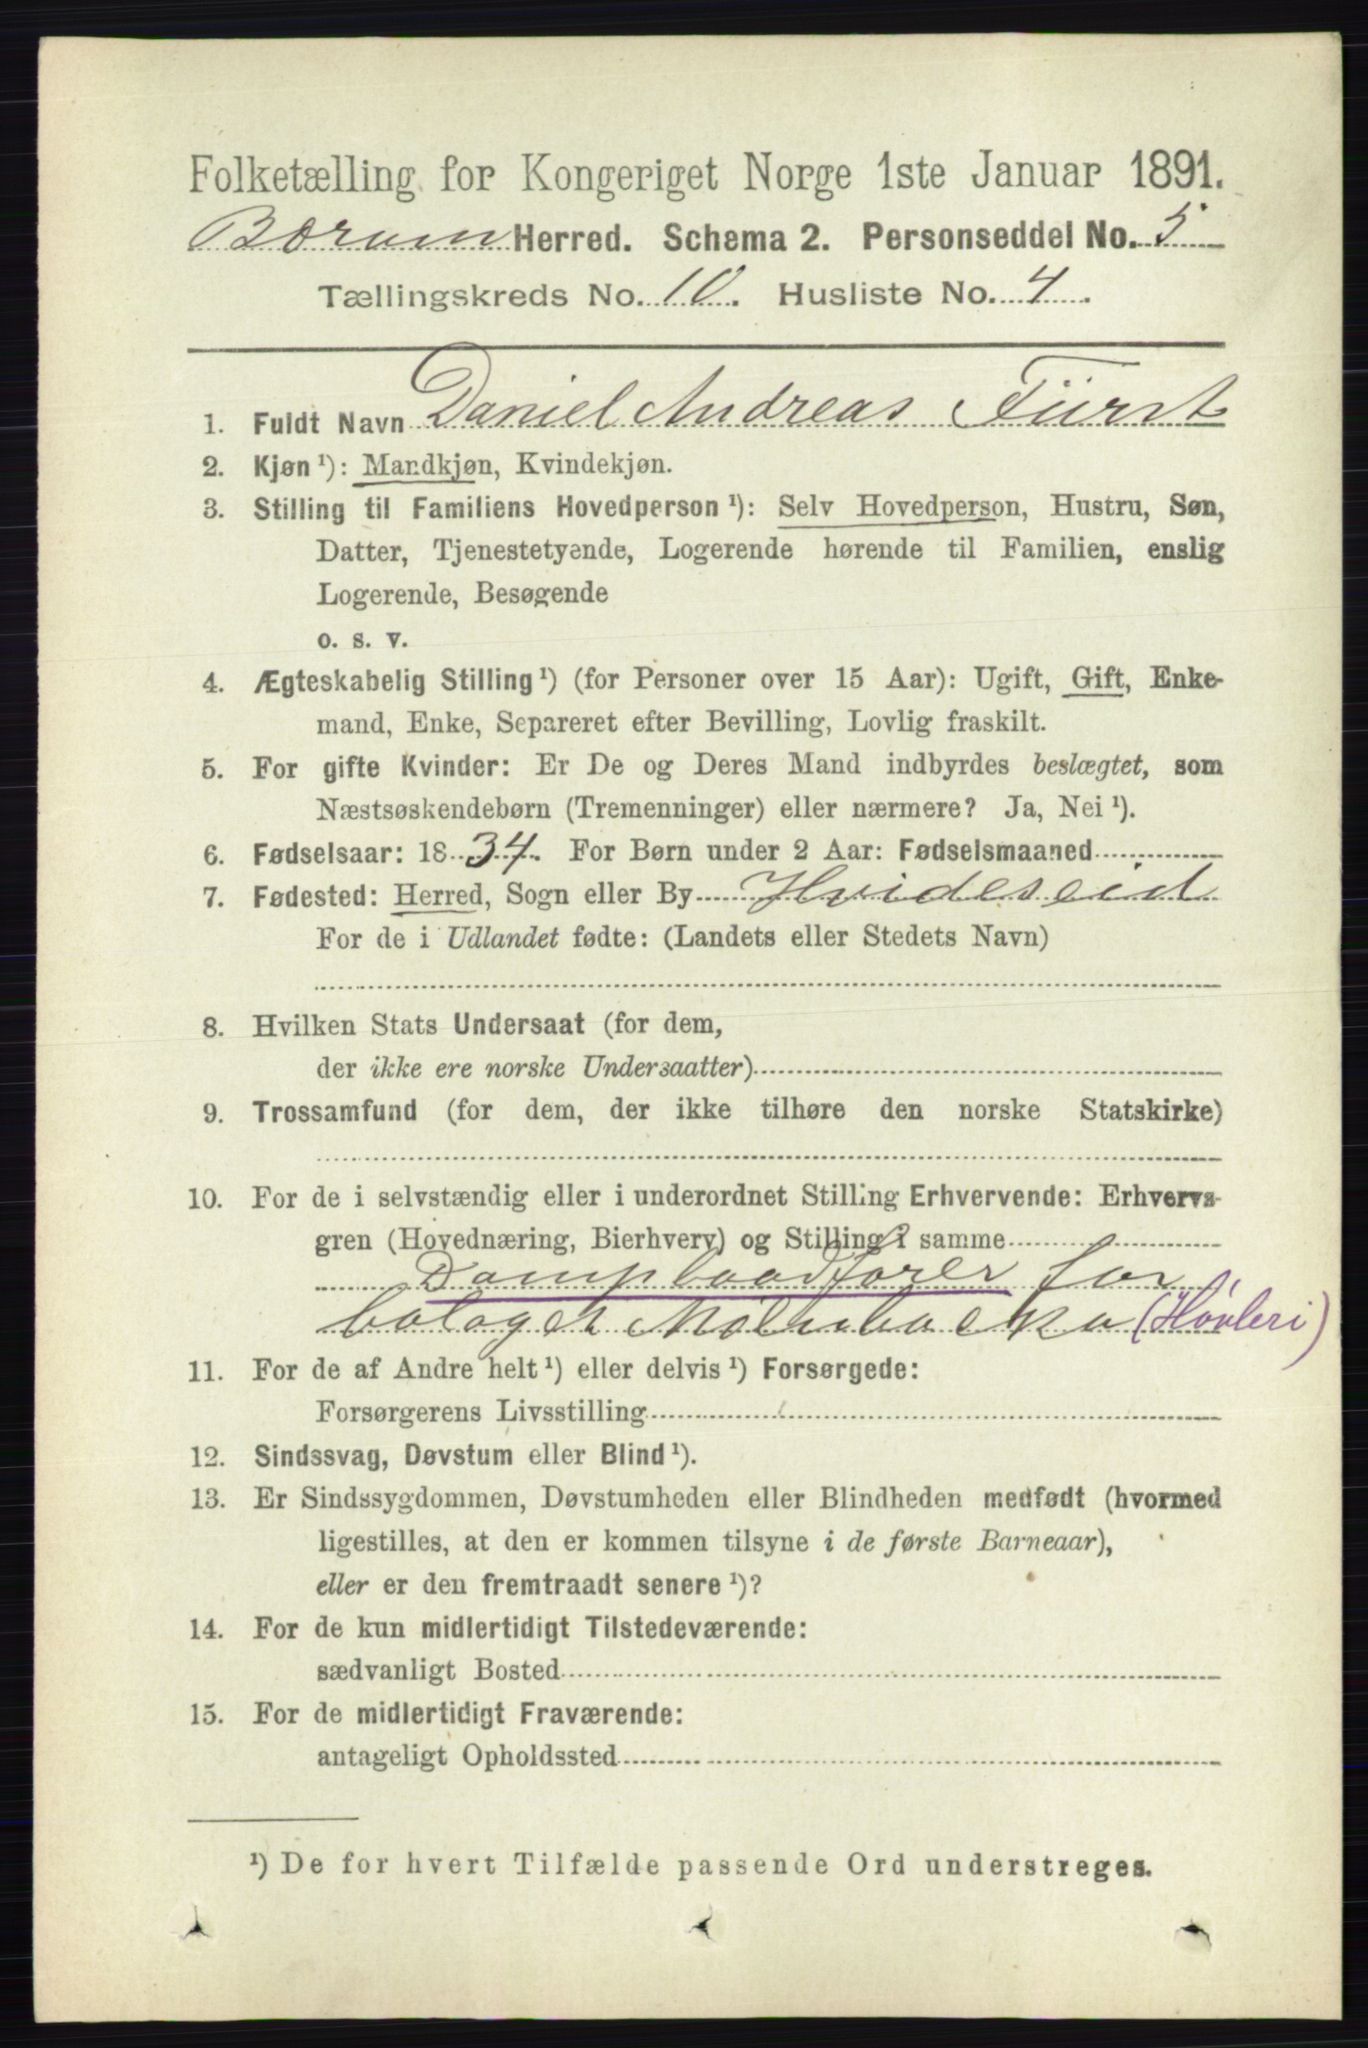 Folketælling for Kongeriget Norge 1ste Januar 1891.
Bærum Herred. Schema 2. Personseddel No. 5
Tællingskreds No. 10. Husliste No. 4.
1. Fuldt Navn Daniel Andreas Fürst
2. Kjøn ¹): Mandkjøn, Kvindekjøn.
3. Stilling til Familiens Hovedperson ¹): Selv Hovedperson, Hustru, Søn,
Datter, Tjenestetyende, Logerende hørende til Familien, enslig
Logerende, Besøgende
o. s. v.
4. Ægteskabelig Stilling ¹) (for Personer over 15 Aar): Ugift, Gift, Enke-
mand, Enke, Separeret efter Bevilling, Lovlig fraskilt.
5. For gifte Kvinder: Er De og Deres Mand indbyrdes beslægtet, som
Næstsøskendebørn (Tremenninger) eller nærmere? Ja, Nei ¹).
6. Fødselsaar: 1834. For Børn under 2 Aar: Fødselsmaaned
7. Fødested: Herred, Sogn eller By Hvideseid
For de i Udlandet fødte: (Landets eller Stedets Navn)
8. Hvilken Stats Undersaat (for dem,
der ikke ere norske Undersaatter)
9. Trossamfund (for dem, der ikke tilhøre den norske Statskirke)
10. For de i selvstændig eller i underordnet Stilling Erhvervende: Erhvervs-
gren (Hovednæring, Bierhverv) og Stilling i samme
Dampbaadfører for
bolaget Mölnbacka (Høvleri)
11. For de af Andre helt ¹) eller delvis ¹) Forsørgede:
Forsørgerens Livsstilling
12. Sindssvag, Døvstum eller Blind ¹).
13. Er Sindssygdommen, Døvstumheden eller Blindheden medfødt (hvormed
ligestilles, at den er kommen tilsyne i de første Barneaar),
eller er den fremtraadt senere ¹)?
14. For de kun midlertidigt Tilstedeværende:
sædvanligt Bosted
15. For de midlertidigt Fraværende:
antageligt Opholdssted
¹) De for hvert Tilfælde passende Ord understreges.